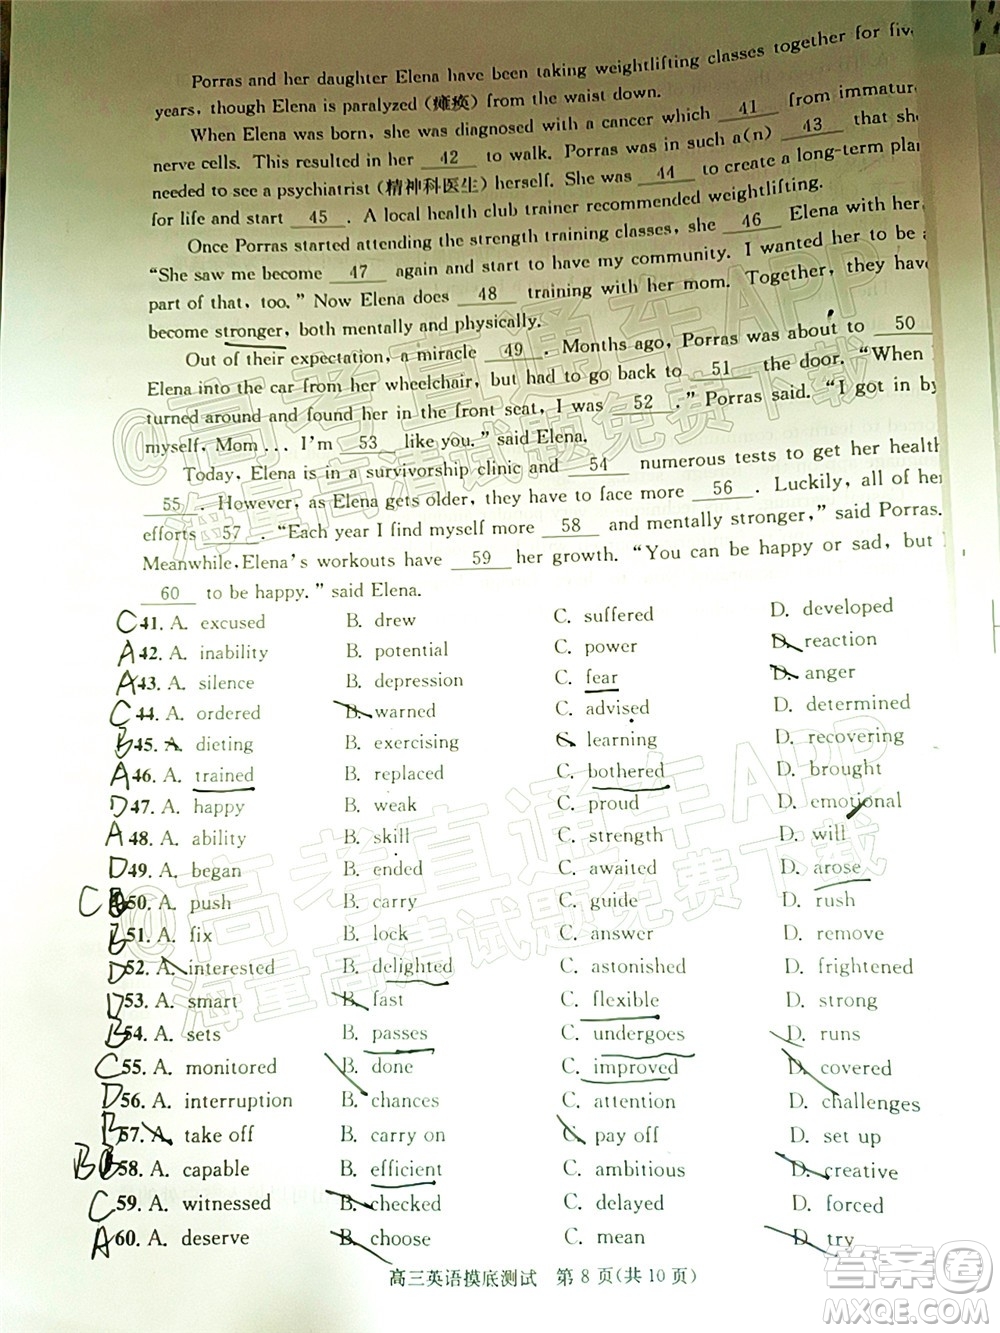 Porras and her daughter Elena have been taking weightlifting classes together for five
years, though Elena is paralyzed（瘫痪）from the waist down.
When Elena was born, she was diagnosed with a cancer which 41 from immature
nerve cells. This resulted in her 42 to walk. Porras was in such a(n) 43 that she
needed to see a psychiatrist（精神科医生）herself. She was 44 to create a long-term plan
for life and start 45 . A local health club trainer recommended weightlifting.
Once Porras started attending the strength training classes, she 46 Elena with her.
“She saw me become 47 again and start to have my community. I wanted her to be a
part of that, too.” Now Elena does 48 training with her mom. Together, they have
become stronger, both mentally and physically.
Out of their expectation, a miracle 49 . Months ago, Porras was about to 50
Elena into the car from her wheelchair, but had to go back to 51 the door. “When I
turned around and found her in the front seat, I was 52 .” Porras said. “I got in by
myself, Mom ... I'm 53 like you.” said Elena.
Today, Elena is in a survivorship clinic and 54 numerous tests to get her health
55 . However, as Elena gets older, they have to face more 56 . Luckily, all of her
efforts 57 . “Each year I find myself more 58 and mentally stronger,” said Porras.
Meanwhile, Elena's workouts have 59 her growth. “You can be happy or sad, but I
60 to be happy.” said Elena.
C 41. A. excused B. drew C. suffered D. developed
A 42. A. inability B. potential C. power D. reaction
A 43. A. silence B. depression C. fear D. anger
C 44. A. ordered B. warned C. advised D. determined
B 45. A. dieting B. exercising C. learning D. recovering
A 46. A. trained B. replaced C. bothered D. brought
D 47. A. happy B. weak C. proud D. emotional
A 48. A. ability B. skill C. strength D. will
D 49. A. began B. ended C. awaited D. arose
C 50. A. push B. carry C. guide D. rush
B 51. A. fix B. lock C. answer D. remove
D 52. A. interested B. delighted C. astonished D. frightened
D 53. A. smart B. fast C. flexible D. strong
B 54. A. sets B. passes C. undergoes D. runs
C 55. A. monitored B. done C. improved D. covered
D 56. A. interruption B. chances C. attention D. challenges
B 57. A. take off B. carry on C. pay off D. set up
B 58. A. capable B. efficient C. ambitious D. creative
C 59. A. witnessed B. checked C. delayed D. forced
A 60. A. deserve B. choose C. mean D. try
高三英语摸底测试 第 8 页(共 10 页)
@高考直通车APP
海量高清试题免费下载
@高考直通车APP
海量高清试题免费下载
答案圈
MXQE.COM